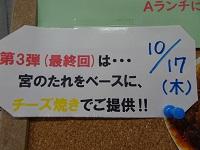 Aランチに
第3弾(最終回)は・・・
宮のたれをベースに、
チーズ焼きでご提供!!
10/17
(木)